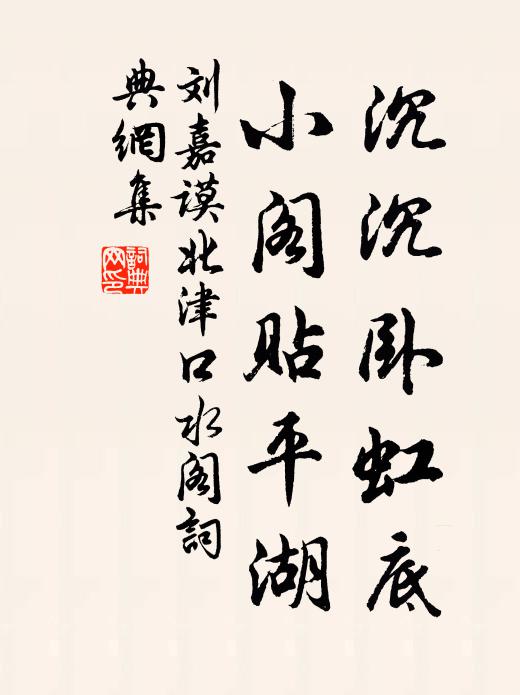 沉沉卧虹底
小阁贴平湖
刘嘉谟北津口水阁詞
典網集
詞典網印